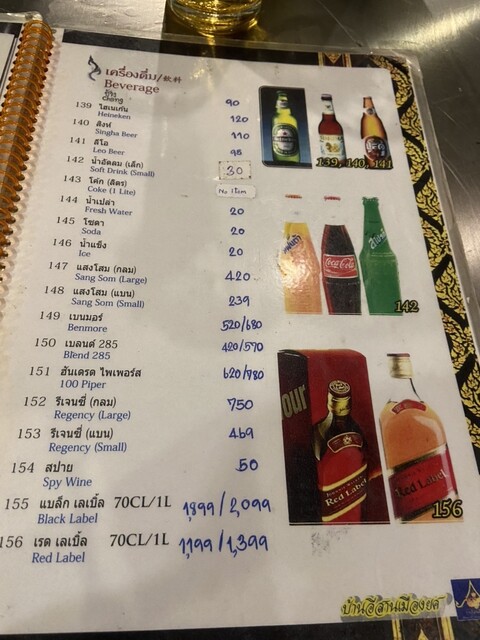 เครื่องดื่ม/飲料
Beverage
ช้าง
Chang 90
139 ไฮเนเก้น 120
Heineken
140 สิงห์ 110
Singha Beer
141 ลีโอ 95
Leo Beer
142 น้ำอัดลม (เล็ก) 30
Soft Drink (Small)
143 โค้ก (ลิตร) No Item
Coke (1 Lite)
144 น้ำเปล่า 20
Fresh Water
145 โซดา 20
Soda
146 น้ำแข็ง 20
Ice
147 แสงโสม (กลม) 420
Sang Som (Large)
148 แสงโสม (แบน) 239
Sang Som (Small)
149 เบนมอร์ 520/680
Benmore
150 เบลนด์ 285 420/570
Blend 285
151 ฮันเดรด ไพเพอร์ส 620/780
100 Piper
152 รีเจนซี่ (กลม) 750
Regency (Large)
153 รีเจนซี่ (แบน) 469
Regency (Small)
154 สปาย 50
Spy Wine
155 แบล็ก เลเบิ้ล 70CL/1L 1,899/2,099
Black Label
156 เรด เลเบิ้ล 70CL/1L 1,199/1,399
Red Label
139, 140, 141
Coca-Cola
142
our
Red Label
Red Label
156
บ้านอีสานเมืองยศ